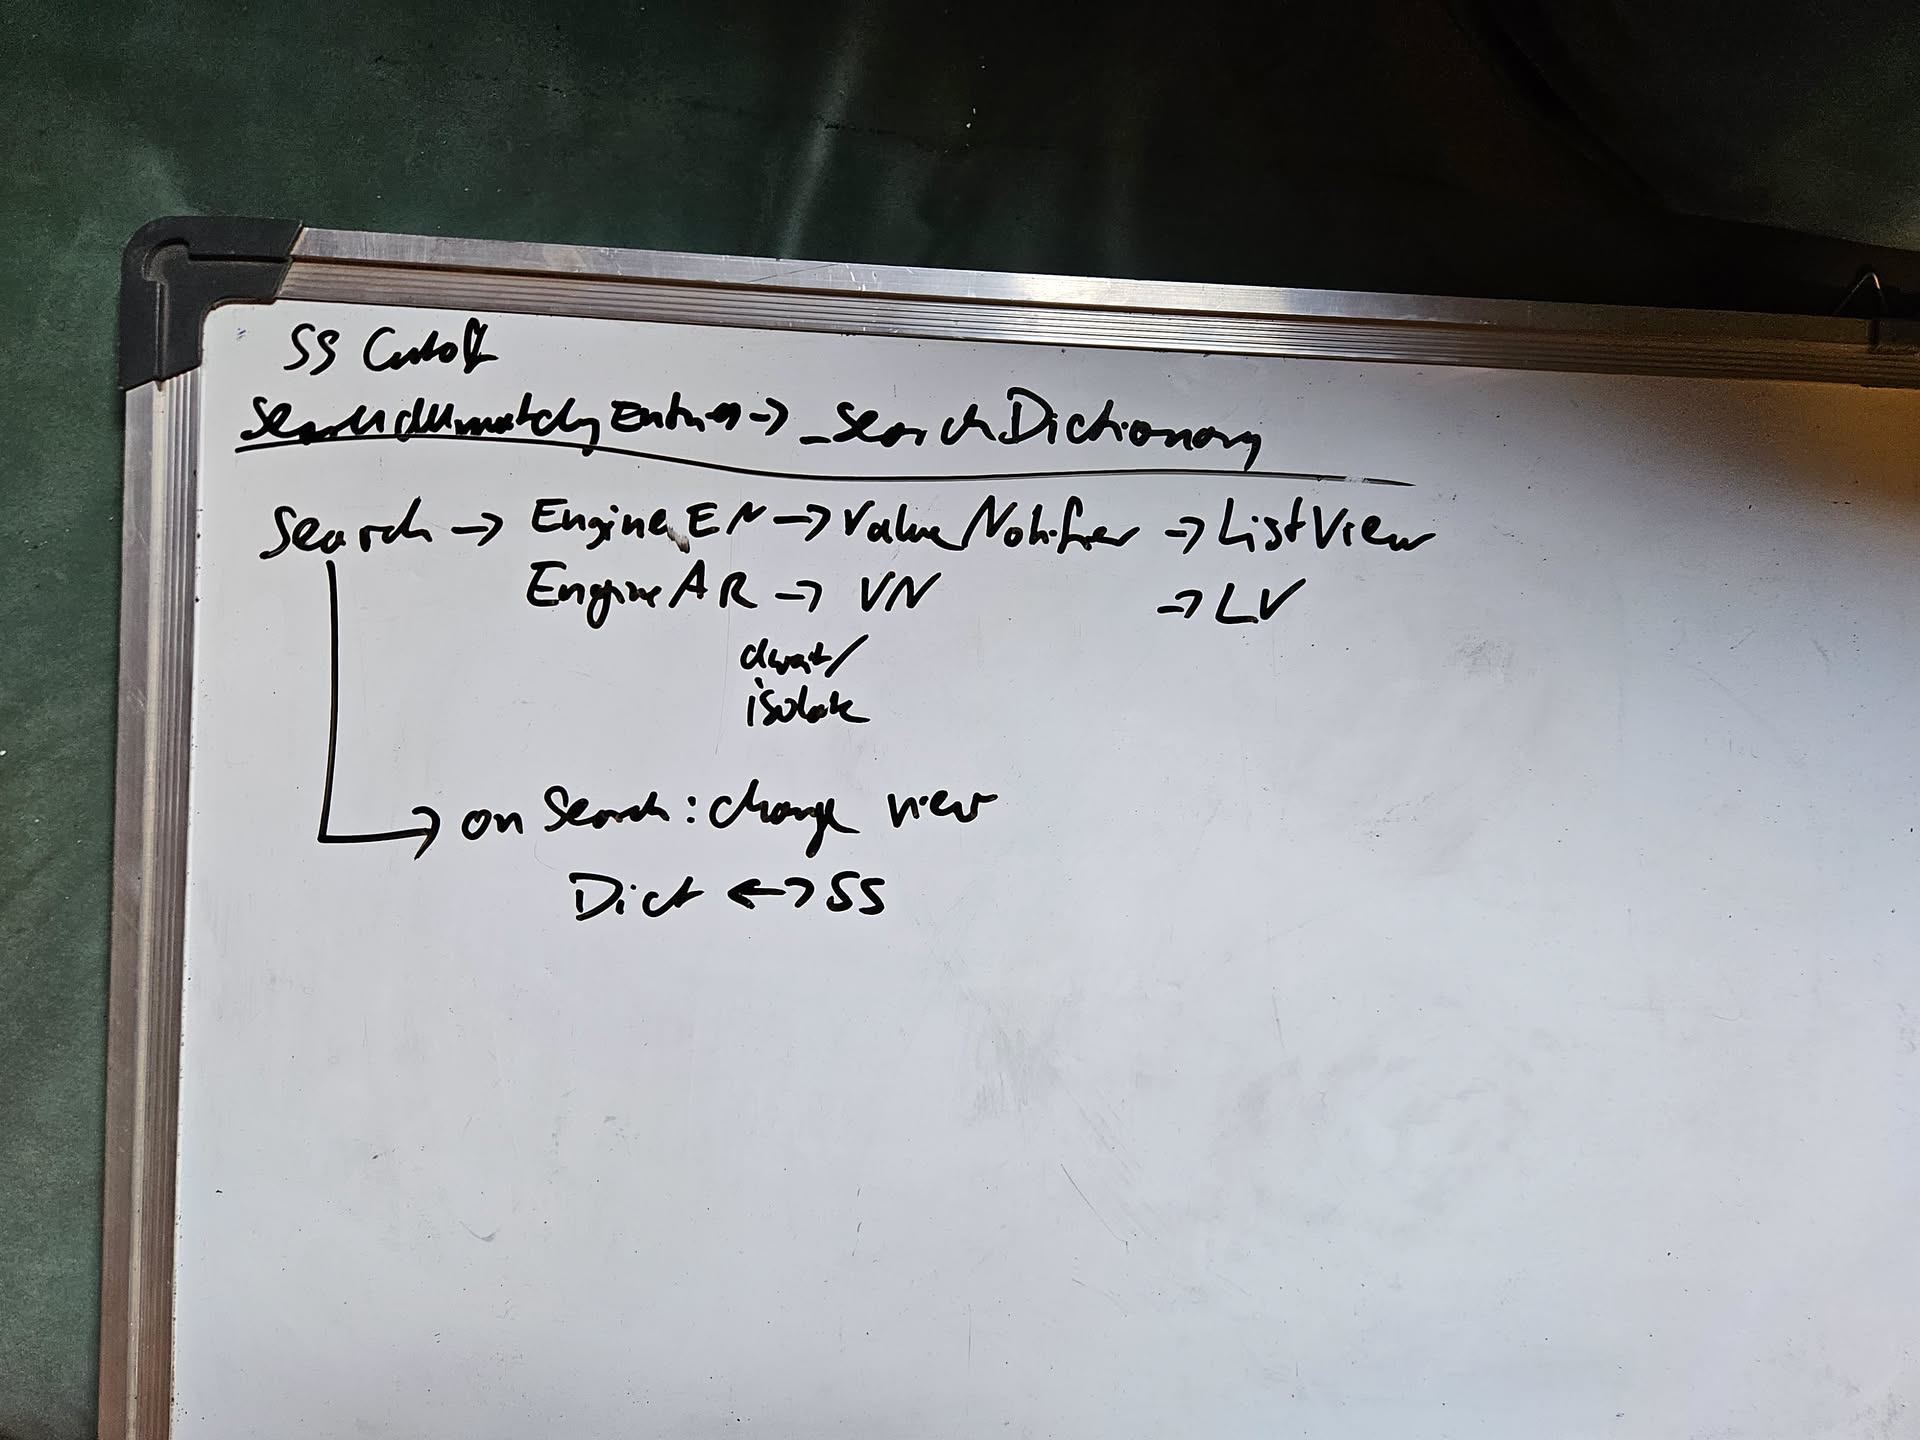 SS Cutoff
SearchAllmatchingEntries → _searchDictionary
Search → EngineEN → ValueNotifier → ListView
EngineAR → VN → LV
await/
isolate
on Search: change view
Dict ↔ SS